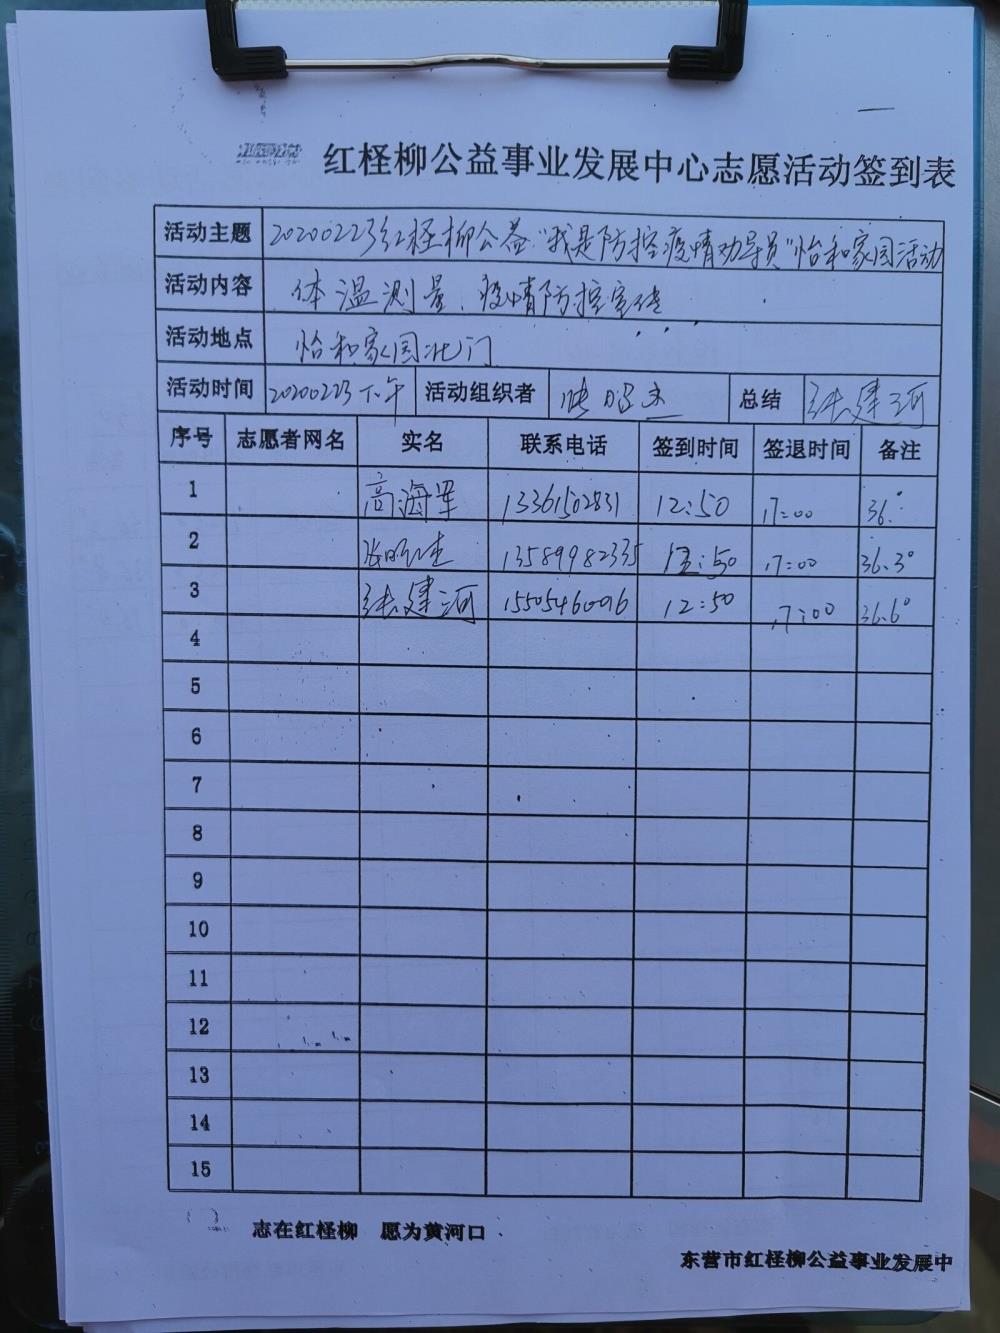 红柽柳公益事业发展中心志愿活动签到表
活动主题 20200223红柽柳公益“我是防控疫情劝导员”怡和家园活动
活动内容 体温测量、疫情防控宣传
活动地点 怡和家园北门
活动时间 20200223下午 活动组织者 总结 张建河
序号 志愿者网名 实名 联系电话 签到时间 签退时间 备注
1 高海军 13361502831 12:50 17:00 36.°
2 13589982335 12:50 17:00 36.3°
3 张建河 15505460016 12:50 17:00 36.6°
4
5
6
7
8
9
10
11
12
13
14
15
志在红柽柳 愿为黄河口
东营市红柽柳公益事业发展中